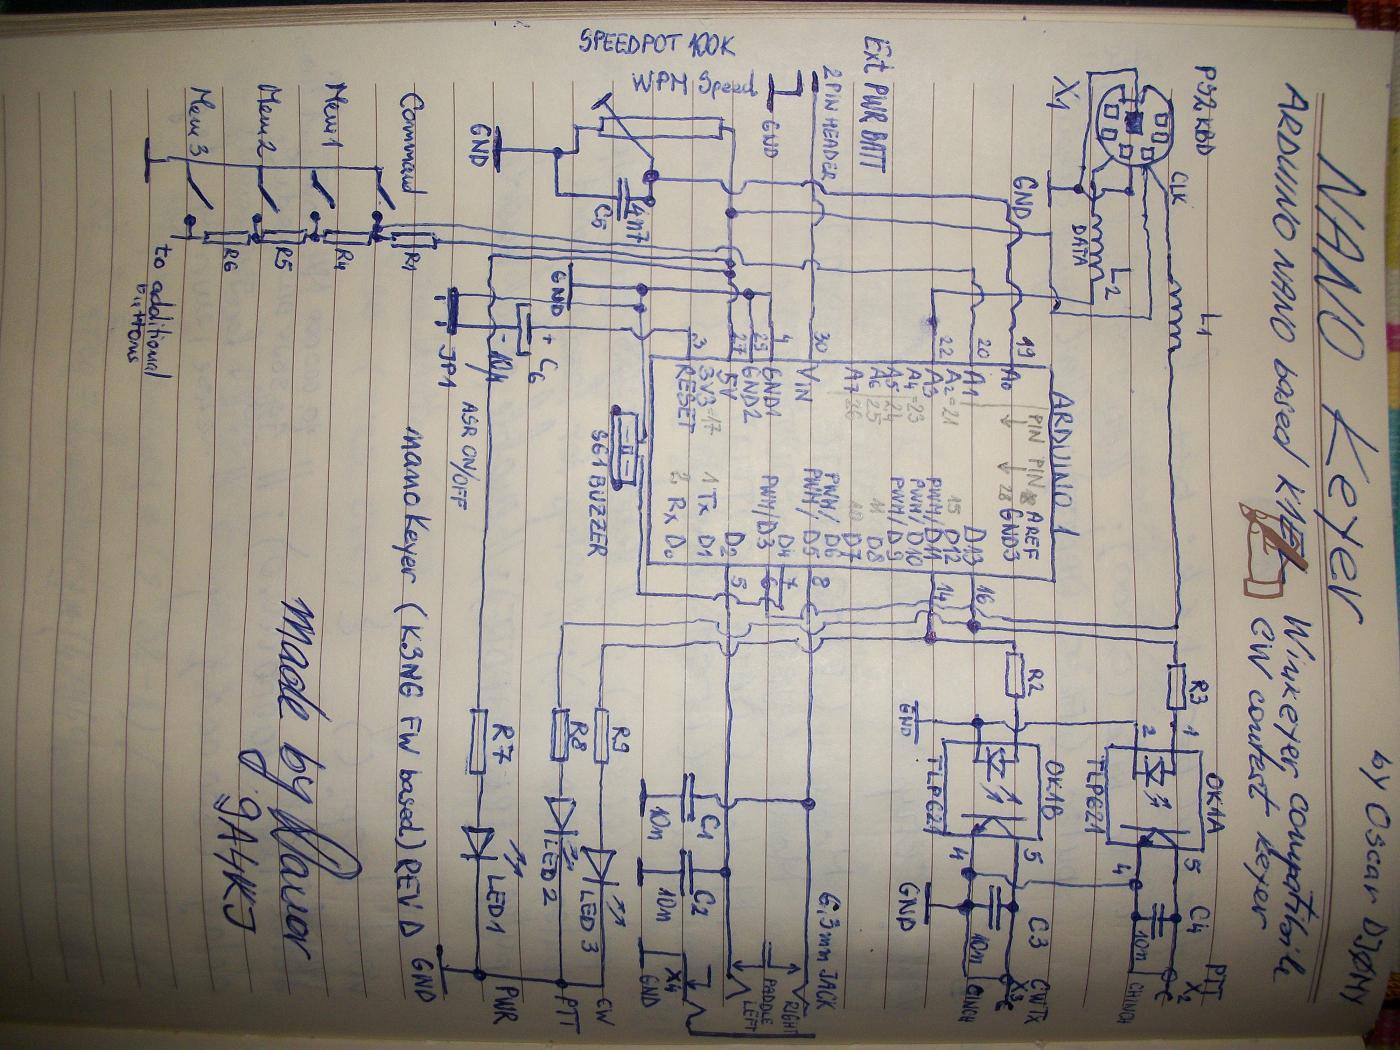 NANO Keyer
by Oscar DJ0MY
ARDUINO NANO based K1EL Winkeyer compatible
CW contest keyer
PS2 KBD
CLK
L1
X1
GND
DATA
L2
R3
1
2
OK1A
TLP621
5
4
C4
10n
PTT
X2
CHINCH
ARDUINO 1
19
20
22
30
4
29
27
3
A0
A1
A2=21
A3
A4=23
A5=24
A6 25
A7=26
VIN
GND1
GND2
5V
3V3=17
RESET
PIN PIN
AREF
28 GND3
D13
15 D12
PWM/D11
PWM/D10
PWM/D9
11 D8
10 D7
PWM/D6
PWM/D5
D4
PWM/D3
D2
1 Tx D1
2 Rx D0
16
14
8
7
6
5
R2
GND
OK1B
TLP621
5
4
GND
C3
10n
CW TX
X3
CINCH
Ext PWR BATT
2 PIN HEADER
GND
SPEEDPOT 100K
WPM Speed
GND
4n7
C5
GND
+ C6
- 10µ
JP1
ASR ON/OFF
SG1 BUZZER
6,3mm JACK
RIGHT
PADDLE
LEFT
C1
10n
C2
10n
X4
GND
R9
LED3
CW
R8
LED2
PTT
R7
LED1
PWR
GND
Command
R1
Mem 1
R4
Mem 2
R5
Mem 3
R6
to additional
buttons
nanoKeyer (K3NG FW based) REV D
Made by
9A4KJ